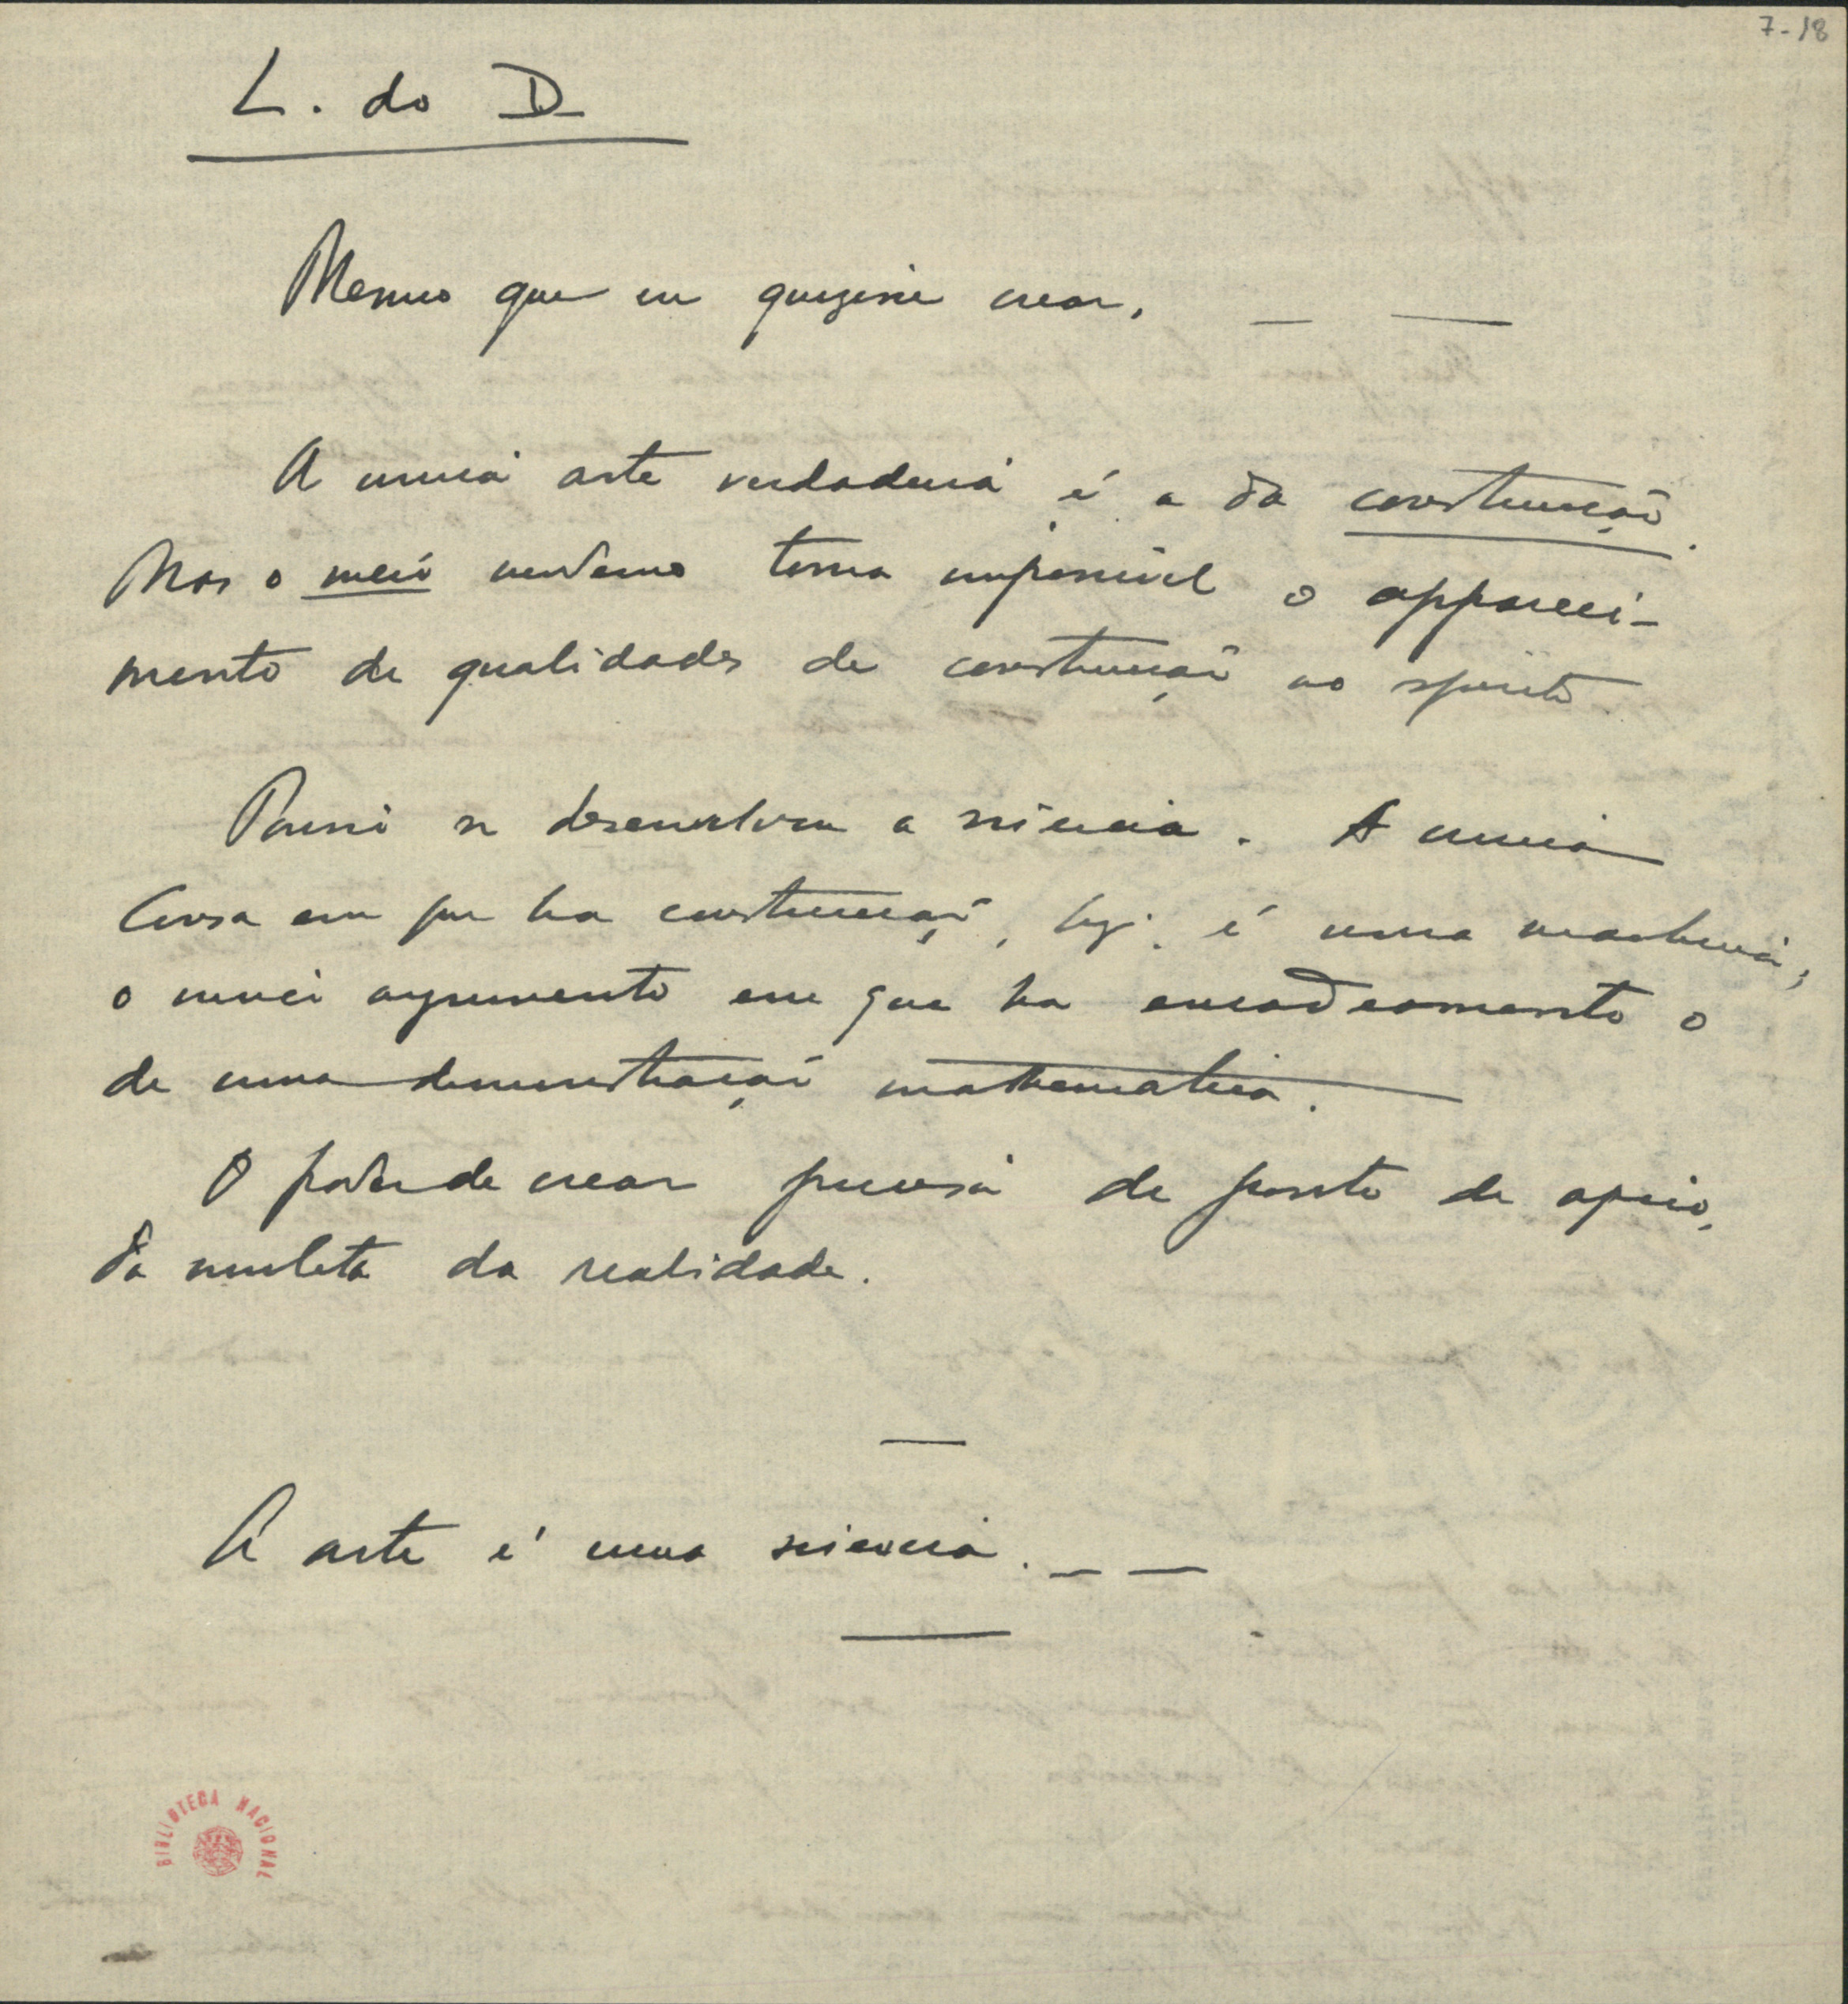 7-18
L. do D
Mesmo que eu quizesse crear, — —
A unica arte verdadeira é a da construcção.
Mas o meio moderno torna impossivel o appareci-
mento de qualidades de construcção no espirito.
Porisso se desenvolveu a sciencia. A unica
cousa em que ha construcção, hoje, é uma machina;
o unico argumento em que ha encadeamento o
de uma demonstração mathematica.
O poder de crear precisa de ponto de apoio,
da muleta da realidade.
A arte é uma sciencia. — —
BIBLIOTECA NACIONAL